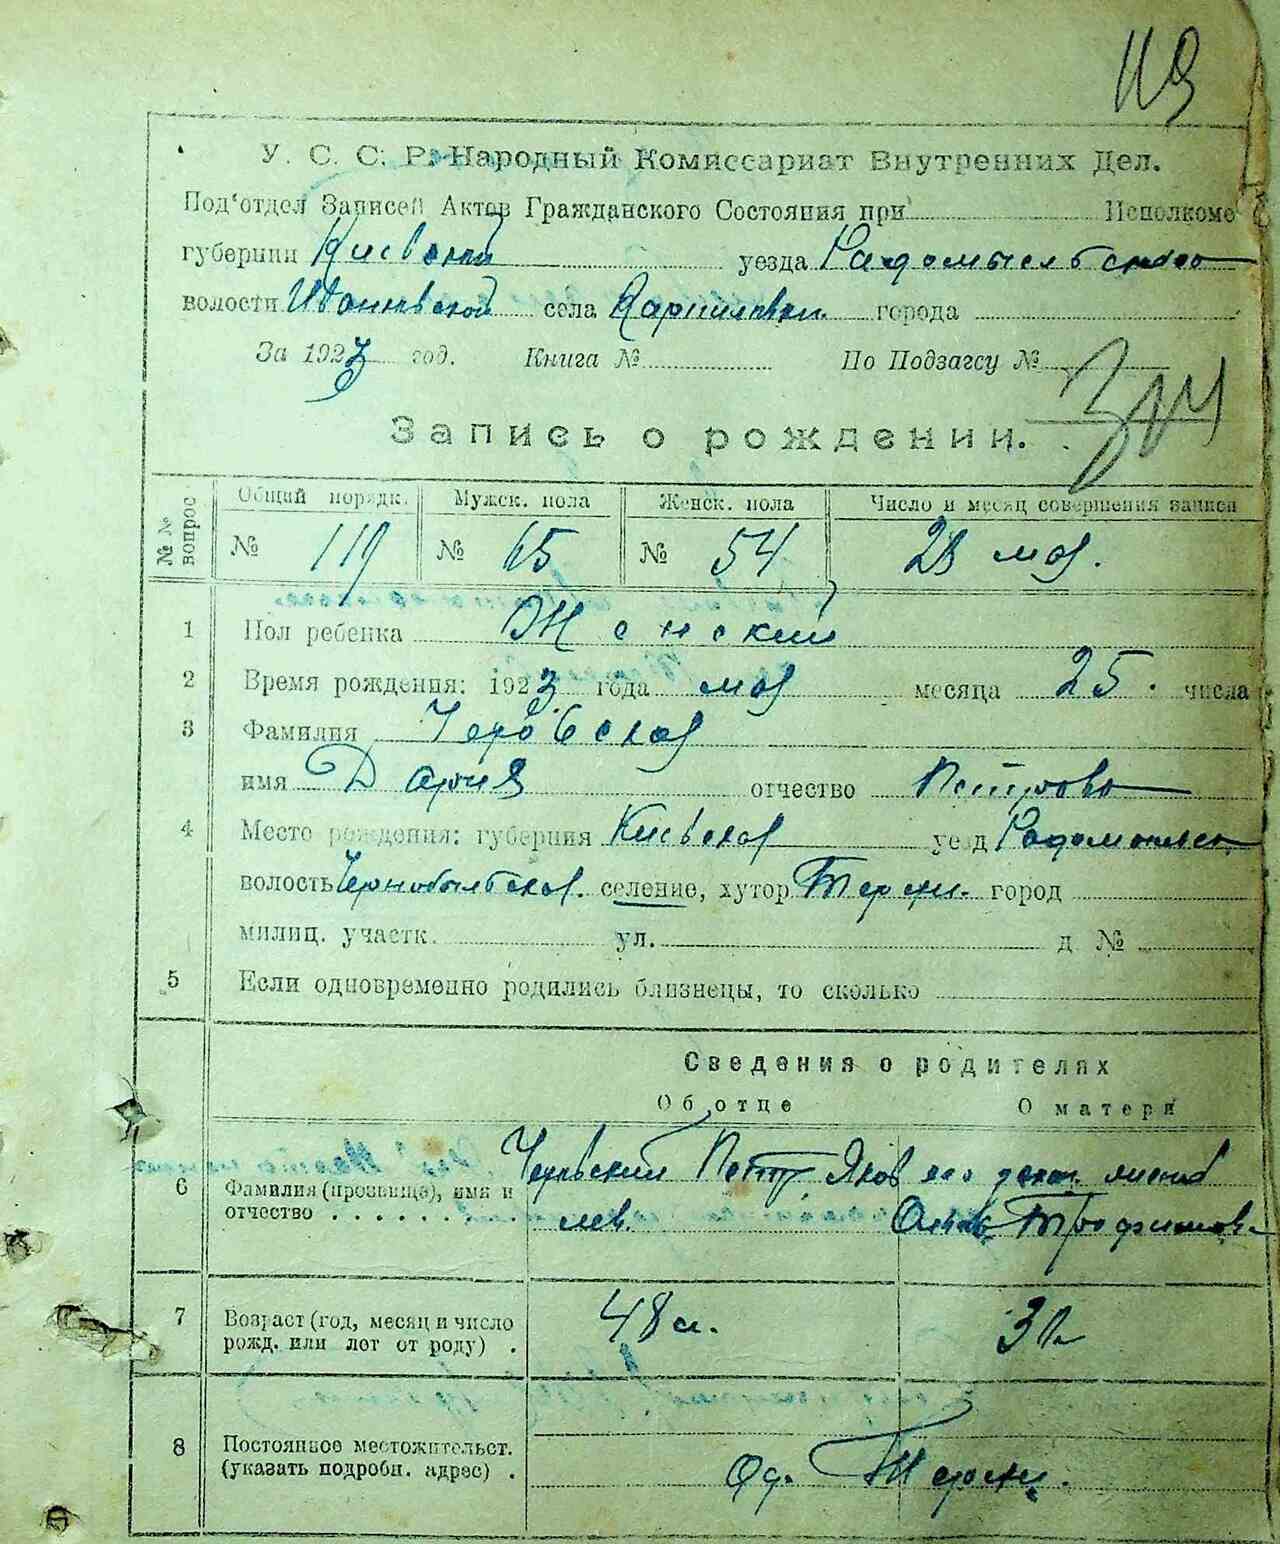 119
У. С. С. Р. Народный Комиссариат Внутренних Дел.
Под'отдел Записей Актов Гражданского Состояния при Исполкоме
губернии Киевской уезда Радомысльского
волости Иванковской села Карпиловки города
За 1923 год. Книга № По Подзагсу №
Запись о рождении.
№ № вопрос. Общий порядк. Мужск. пола Женск. пола Число и месяц совершения записи
№ 119 № 65 № 54 28 мая.
1 Пол ребенка Женский
2 Время рождения: 1923 года мая месяца 25. числа
3 Фамилия
имя Дария отчество Петрова
4 Место рождения: губерния Киевская уезд Радомысльск
волость Чернобыльская селение, хутор город
милиц. участк. ул. д №
5 Если одновременно родились близнецы, то сколько
Сведения о родителях
Об отце О матери
6 Фамилия (прозвище), имя и Петр Яков его
отчество . . . . . . . лев. Трофимова
7 Возраст (год, месяц и число 48 л.
рожд. или лет от роду) .
8 Постоянное местожительст.
(указать подробн. адрес) .